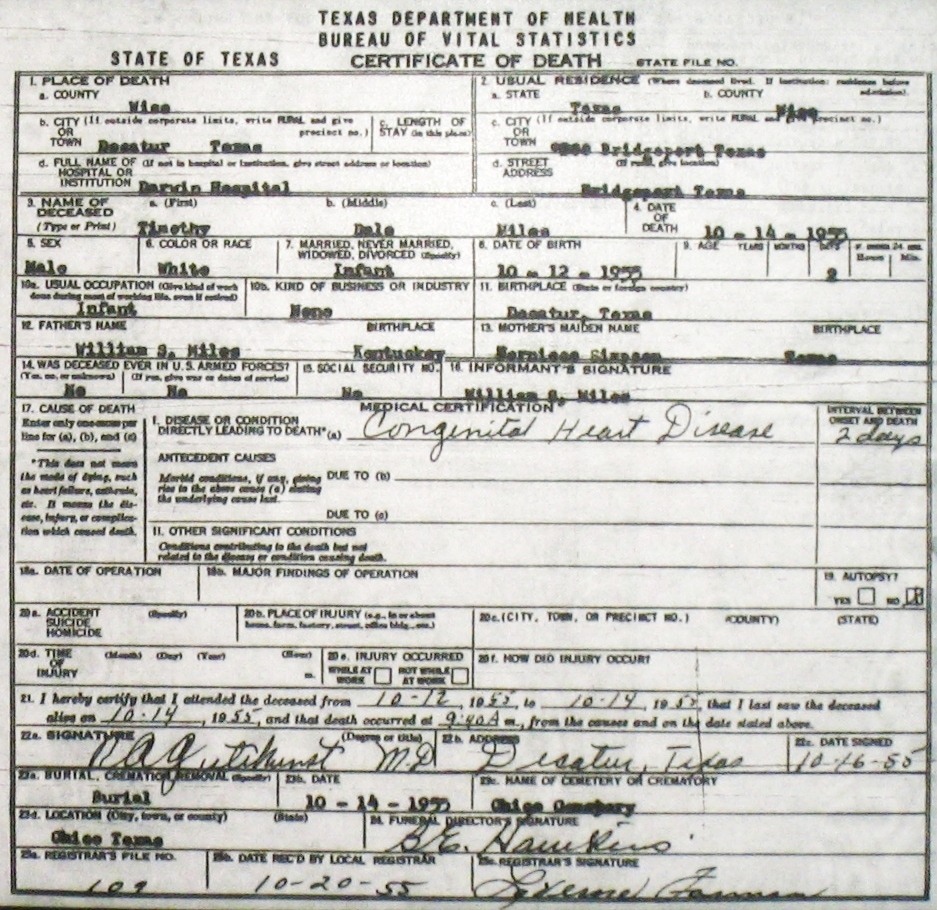 TEXAS DEPARTMENT OF HEALTH
BUREAU OF VITAL STATISTICS
STATE OF TEXAS CERTIFICATE OF DEATH STATE FILE NO.
1. PLACE OF DEATH 2. USUAL RESIDENCE (Where deceased lived. If institution: residence before admission).
a. COUNTY a. STATE b. COUNTY
Wise Texas Wise
b. CITY (If outside corporate limits, write RURAL and give precinct no.) c. LENGTH OF STAY (in this place) c. CITY (If outside corporate limits, write RURAL and give precinct no.)
OR OR
TOWN Decatur Texas TOWN Bridgeport Texas
d. FULL NAME OF (If not in hospital or institution, give street address or location) d. STREET (If rural, give location)
HOSPITAL OR ADDRESS
INSTITUTION Darwin Hospital Bridgeport Texas
3. NAME OF DECEASED a. (First) b. (Middle) c. (Last) 4. DATE OF DEATH
(Type or Print) Timothy Dale Miles 10 - 14 - 1955
5. SEX 6. COLOR OR RACE 7. MARRIED, NEVER MARRIED, WIDOWED, DIVORCED (Specify) 8. DATE OF BIRTH 9. AGE YEARS MONTHS DAYS IF UNDER 24 HRS. Hours Min.
Male White Infant 10 - 12 - 1955 2
10a. USUAL OCCUPATION (Give kind of work done during most of working life, even if retired) 10b. KIND OF BUSINESS OR INDUSTRY 11. BIRTHPLACE (State or foreign country)
Infant None Decatur, Texas
12. FATHER'S NAME BIRTHPLACE 13. MOTHER'S MAIDEN NAME BIRTHPLACE
William S. Miles Kentuckey Simpson Texas
14. WAS DECEASED EVER IN U.S. ARMED FORCES? 15. SOCIAL SECURITY NO. 16. INFORMANT'S SIGNATURE
(Yes, no, or unknown) (If yes, give war or dates of service)
No No No William S. Miles
17. CAUSE OF DEATH MEDICAL CERTIFICATION INTERVAL BETWEEN ONSET AND DEATH
Enter only one cause per line for (a), (b), and (c)
I. DISEASE OR CONDITION DIRECTLY LEADING TO DEATH* (a) Congenital Heart Disease 2 days
*This does not mean the mode of dying, such as heart failure, asthenia, etc. It means the disease, injury, or complication which caused death.
ANTECEDENT CAUSES
Morbid conditions, if any, giving rise to the above cause (a) stating the underlying cause last.
DUE TO (b)
DUE TO (c)
11. OTHER SIGNIFICANT CONDITIONS
Conditions contributing to the death but not
related to the disease or condition causing death.
18a. DATE OF OPERATION 18b. MAJOR FINDINGS OF OPERATION 19. AUTOPSY?
YES NO
20a. ACCIDENT (Specify) 20b. PLACE OF INJURY (e.g., in or about home, farm, factory, street, office bldg., etc.) 20c. (CITY, TOWN, OR PRECINCT NO.) (COUNTY) (STATE)
SUICIDE
HOMICIDE
20d. TIME (Month) (Day) (Year) (Hour) 20e. INJURY OCCURRED 20f. HOW DID INJURY OCCUR?
OF INJURY m. WHILE AT WORK NOT WHILE AT WORK
21. I hereby certify that I attended the deceased from 10-12, 1955, to 10-14, 1955, that I last saw the deceased
alive on 10-14, 1955, and that death occurred at 9:40A m., from the causes and on the date stated above.
22a. SIGNATURE (Degree or title) 22b. ADDRESS 22c. DATE SIGNED
M.D Decatur, Texas 10-16-55
23a. BURIAL, CREMATION, REMOVAL (Specify) 23b. DATE 23c. NAME OF CEMETERY OR CREMATORY
Burial 10 - 14 - 1955 Chico Cemetery
23d. LOCATION (City, town, or county) (State) 24. FUNERAL DIRECTOR'S SIGNATURE
Chico Texas B.E. Hawkins
25a. REGISTRAR'S FILE NO. 25b. DATE REC'D BY LOCAL REGISTRAR 25c. REGISTRAR'S SIGNATURE
109 10-20-55